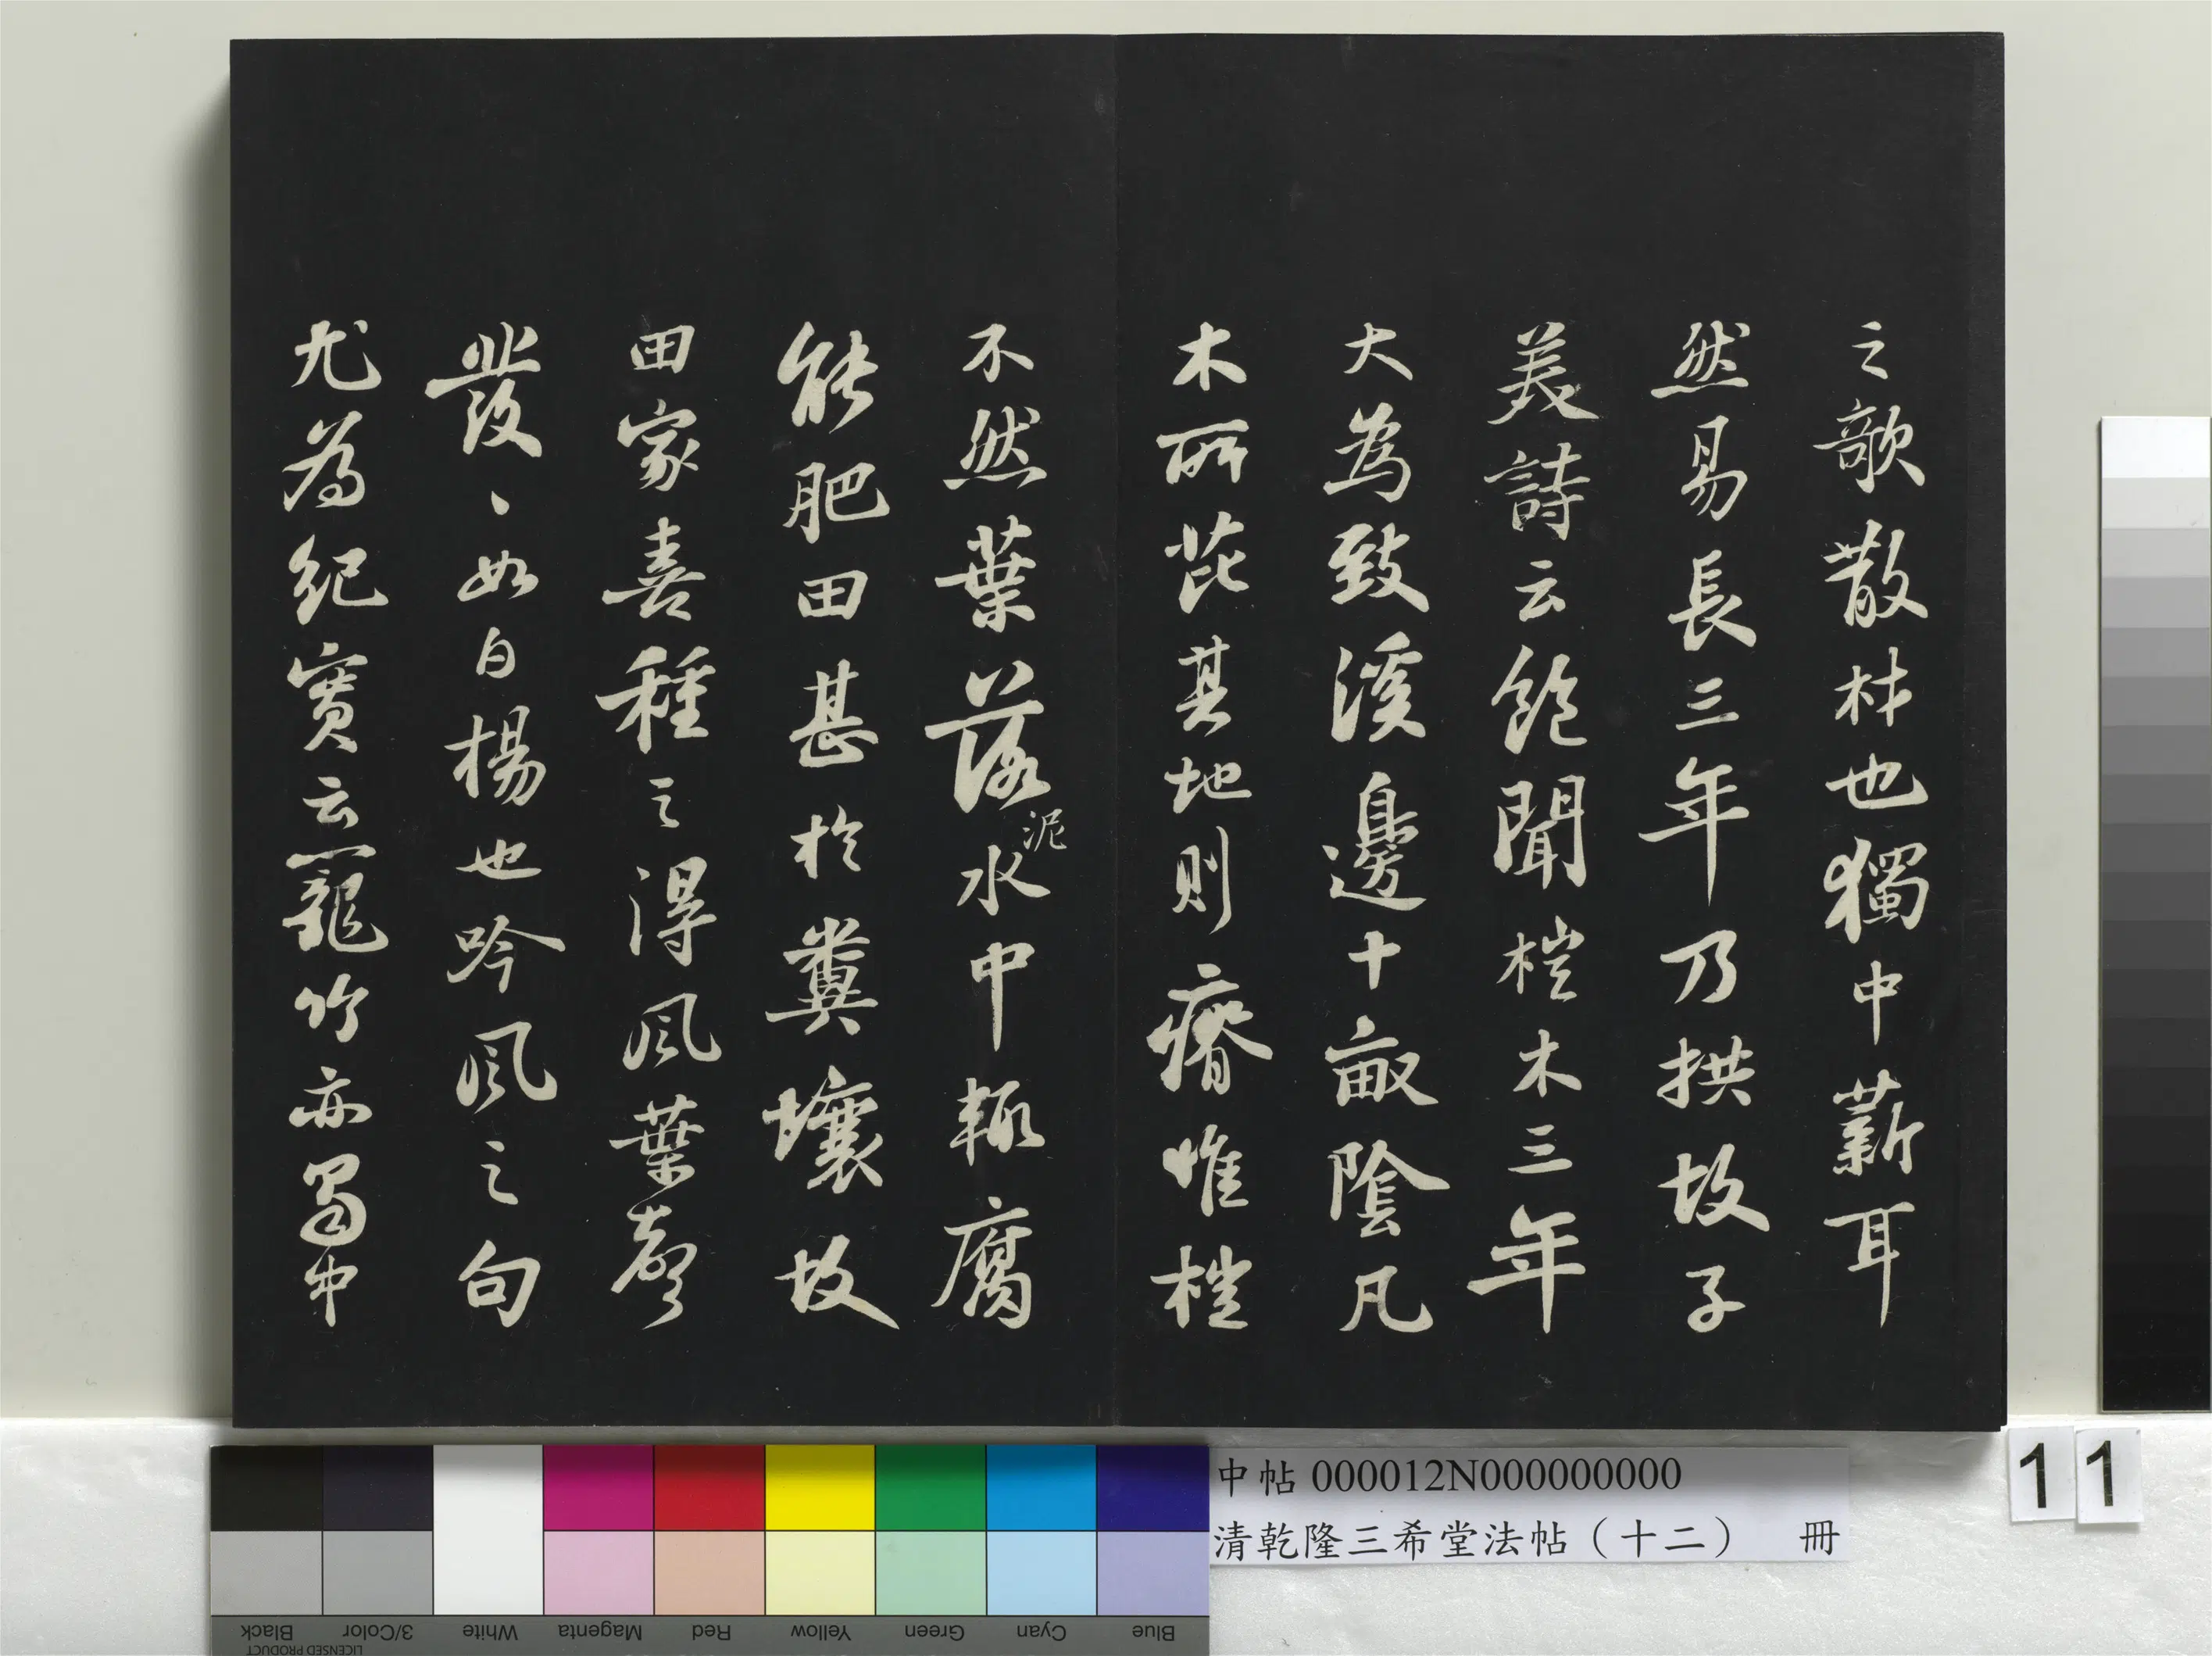 之歌散材也獨中薪耳
然易長三年乃拱故子
美詩云飽聞榿木三年
大為致溪邊十畝陰凡
木所芘其地則瘠惟榿
不然葉落泥水中輒腐
能肥田甚於糞壤故
田家喜種之得風葉聲
發〻如白楊也吟風之句
尤為紀實云籠竹亦蜀中
中帖 000012N000000000
清乾隆三希堂法帖（十二） 冊
1 1
Black
3/Color
White
Magenta
Red
Yellow
Green
Cyan
Blue
LICENSED PRODUCT